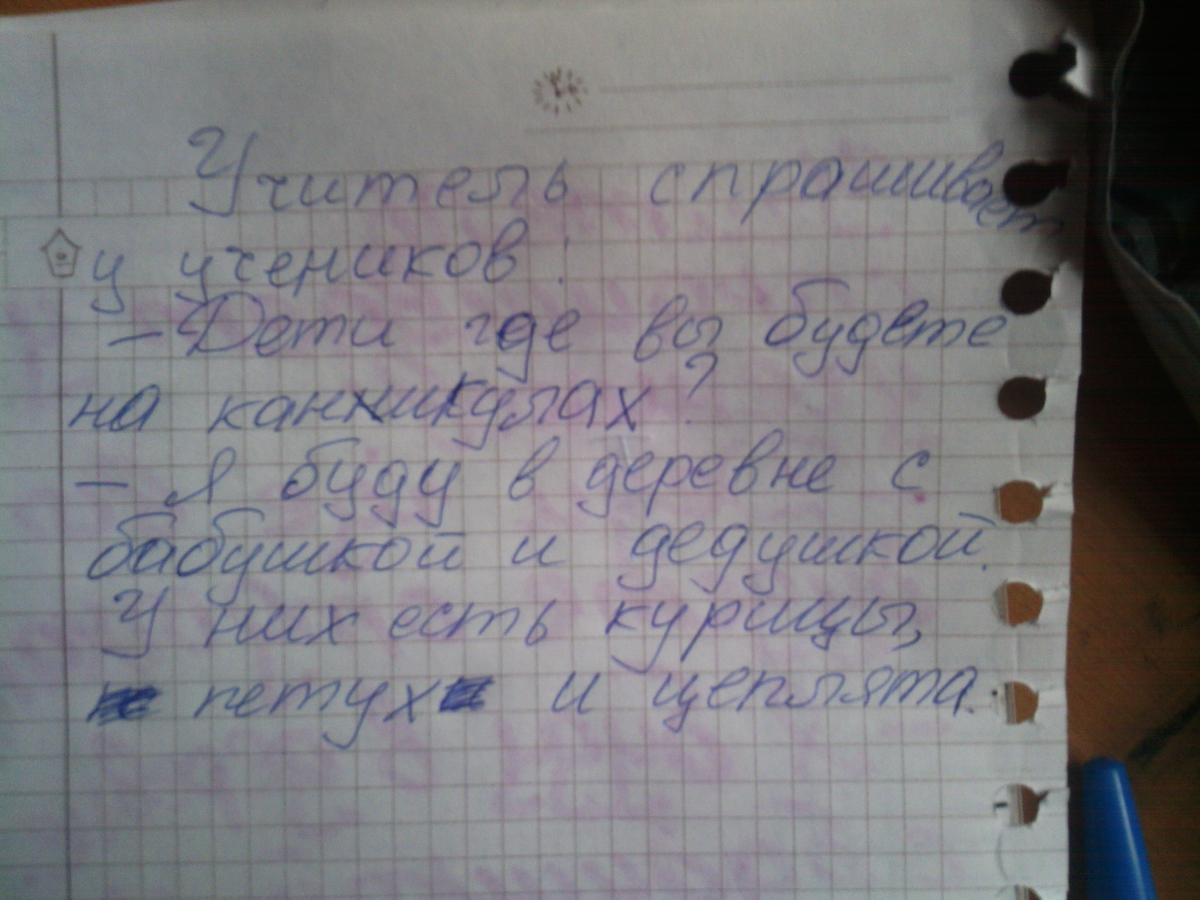 Учитель спрашивает
у учеников:
- Дети где вы будете
на канникулах?
- Я буду в деревне с
бабушкой и дедушкой.
У них есть курицы,
петух и цеплята.